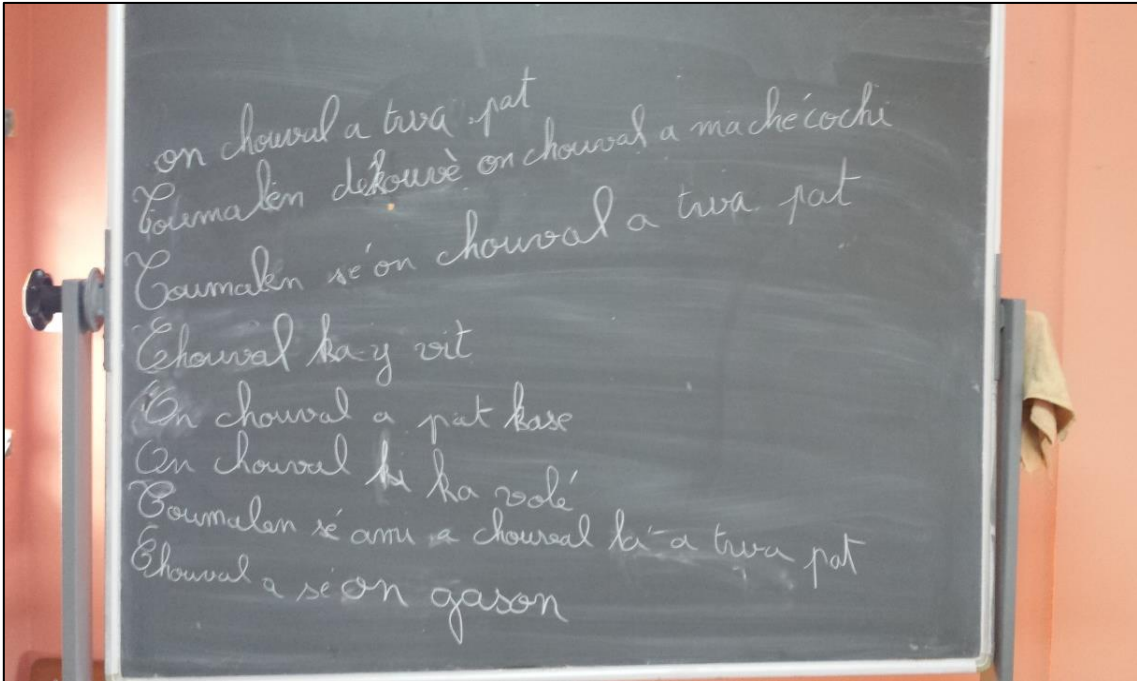 on chouval a twa pat
Toumalen dékouvè on chouval a machécochi
Toumalen sé on chouval a twa pat
Chouval ka-y vit
On chouval a pat kase
On chouval ki ka volé
Toumalen sé ami a chouval la-a twa pat
Chouval a sé on gason